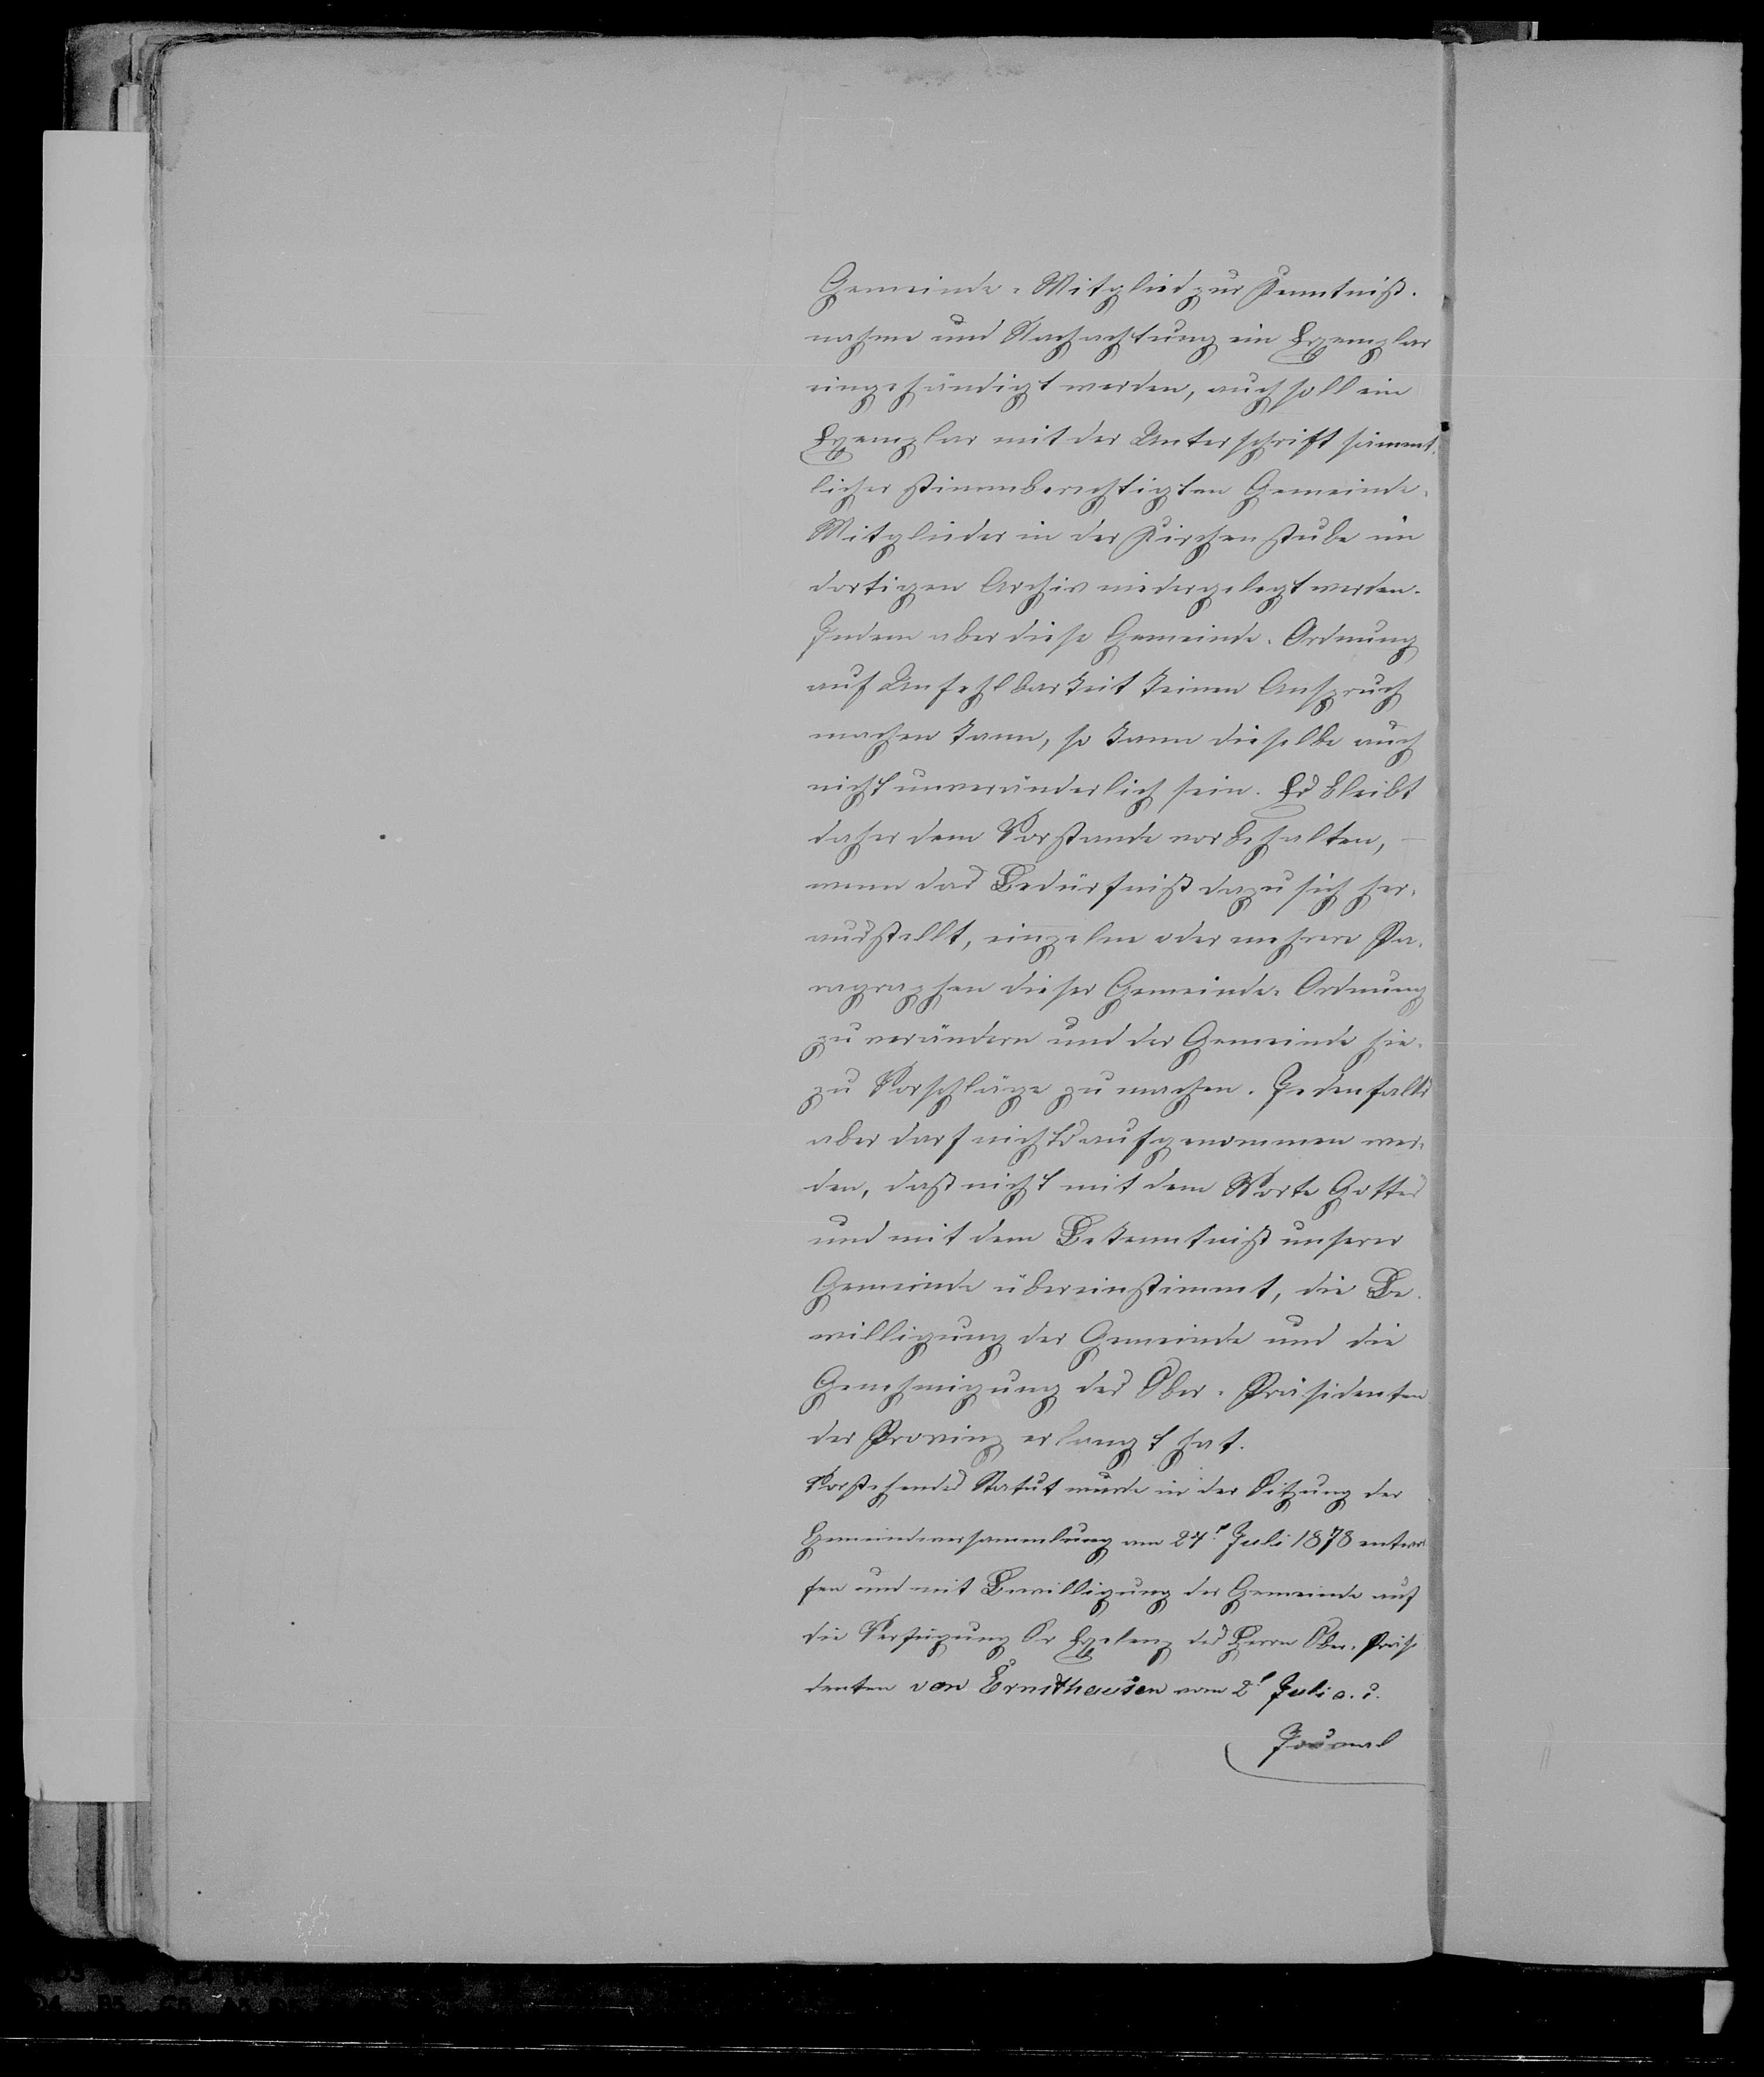 Gemeinde-Mitglied zur Kenntniß-
nahme und Nachachtung ein Exemplar
eingehändigt werden, auch soll ein
Exemplar mit der Unterschrift sämmt-
licher stimmberechtigten Gemeinde-
Mitglieder in der Kirchenstube im
dortigen Archiv niedergelegt werden.
Indem aber diese Gemeinde-Ordnung
auf Unfehlbarkeit keinen Anspruch
machen kann, so kann dieselbe auch
nicht unveränderlich sein. Es bleibt
daher dem Vorstande vorbehalten, –
wenn das Bedürfniß dazu sich her-
ausstellt, einzelne oder mehrere Pa-
ragraphen dieser Gemeinde-Ordnung
zu verändern und der Gemeinde hie-
zu Vorschläge zu machen. Jedenfalls
aber darf nichts aufgenommen wer-
den, daß nicht mit dem Worte Gottes
und mit dem Bekenntniß unserer
Gemeinde übereinstimmt, die Be-
willigung der Gemeinde und die
Genehmigung des Ober-Präsidenten
der Provinz erlangt hat.
Vorstehendes Statut wurde in der Sitzung der
Gemeindeversammlung am 24t Juli 1878 entwor
fen und mit Bewilligung der Gemeinde auf
die Verfügung Sr Exelenz des Herrn Ober-Präsi
denten von Ernsthausen vom 2t Juli a. c.